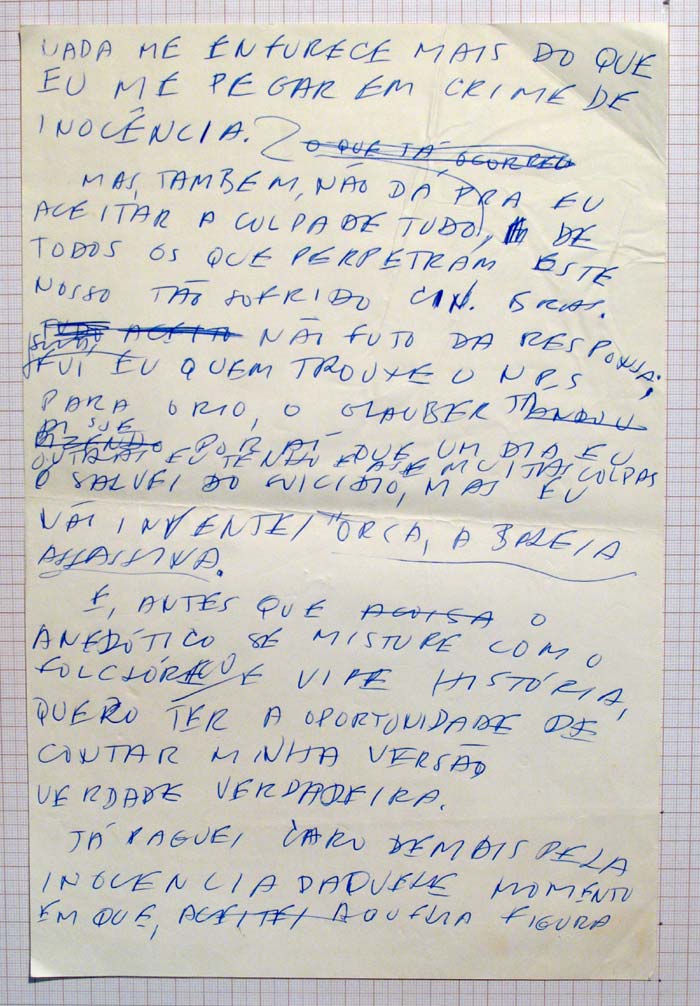 NADA ME ENFURECE MAIS DO QUE
EU ME PEGAR EM CRIME DE
INOCÊNCIA.
O QUE JÁ OCORREU
MAS, TAMBEM, NÃO DÁ PRA EU
ACEITAR A CULPA DE TUDO, DE
TODOS OS QUE PERPETRAM ESTE
NOSSO TÃO SOFRIDO CIN. BRAS.
TUDO ACEITO NÃI FUJO DA RESPONSA;
FUI EU QUEM TROUXE O NPS
PARA O RIO, O GLAUBER JÁ ANDOU
DISSE
DIZENDO POR AÍ QUE UM DIA EU
OUTRAS EU TENHO E ATÉ MUITAS CULPAS
O SALVEI DO SUICIDIO, MAS EU
NÃI INVENTEI "ORCA, A BALEIA
ASSASSINA.
E, ANTES QUE A COISA O
ANEDÓTICO SE MISTURE COM O
FOLCLÓRICO E VIRE HISTÓRIA,
QUERO TER A OPORTUNIDADE DE
CONTAR MINHA VERSÃO
VERDADE VERDADEIRA.
JÁ PAGUEI CARO DEMAIS PELA
INOCENCIA DAQUELE MOMENTO
EM QUE, ACEITEI AQUELA FIGURA